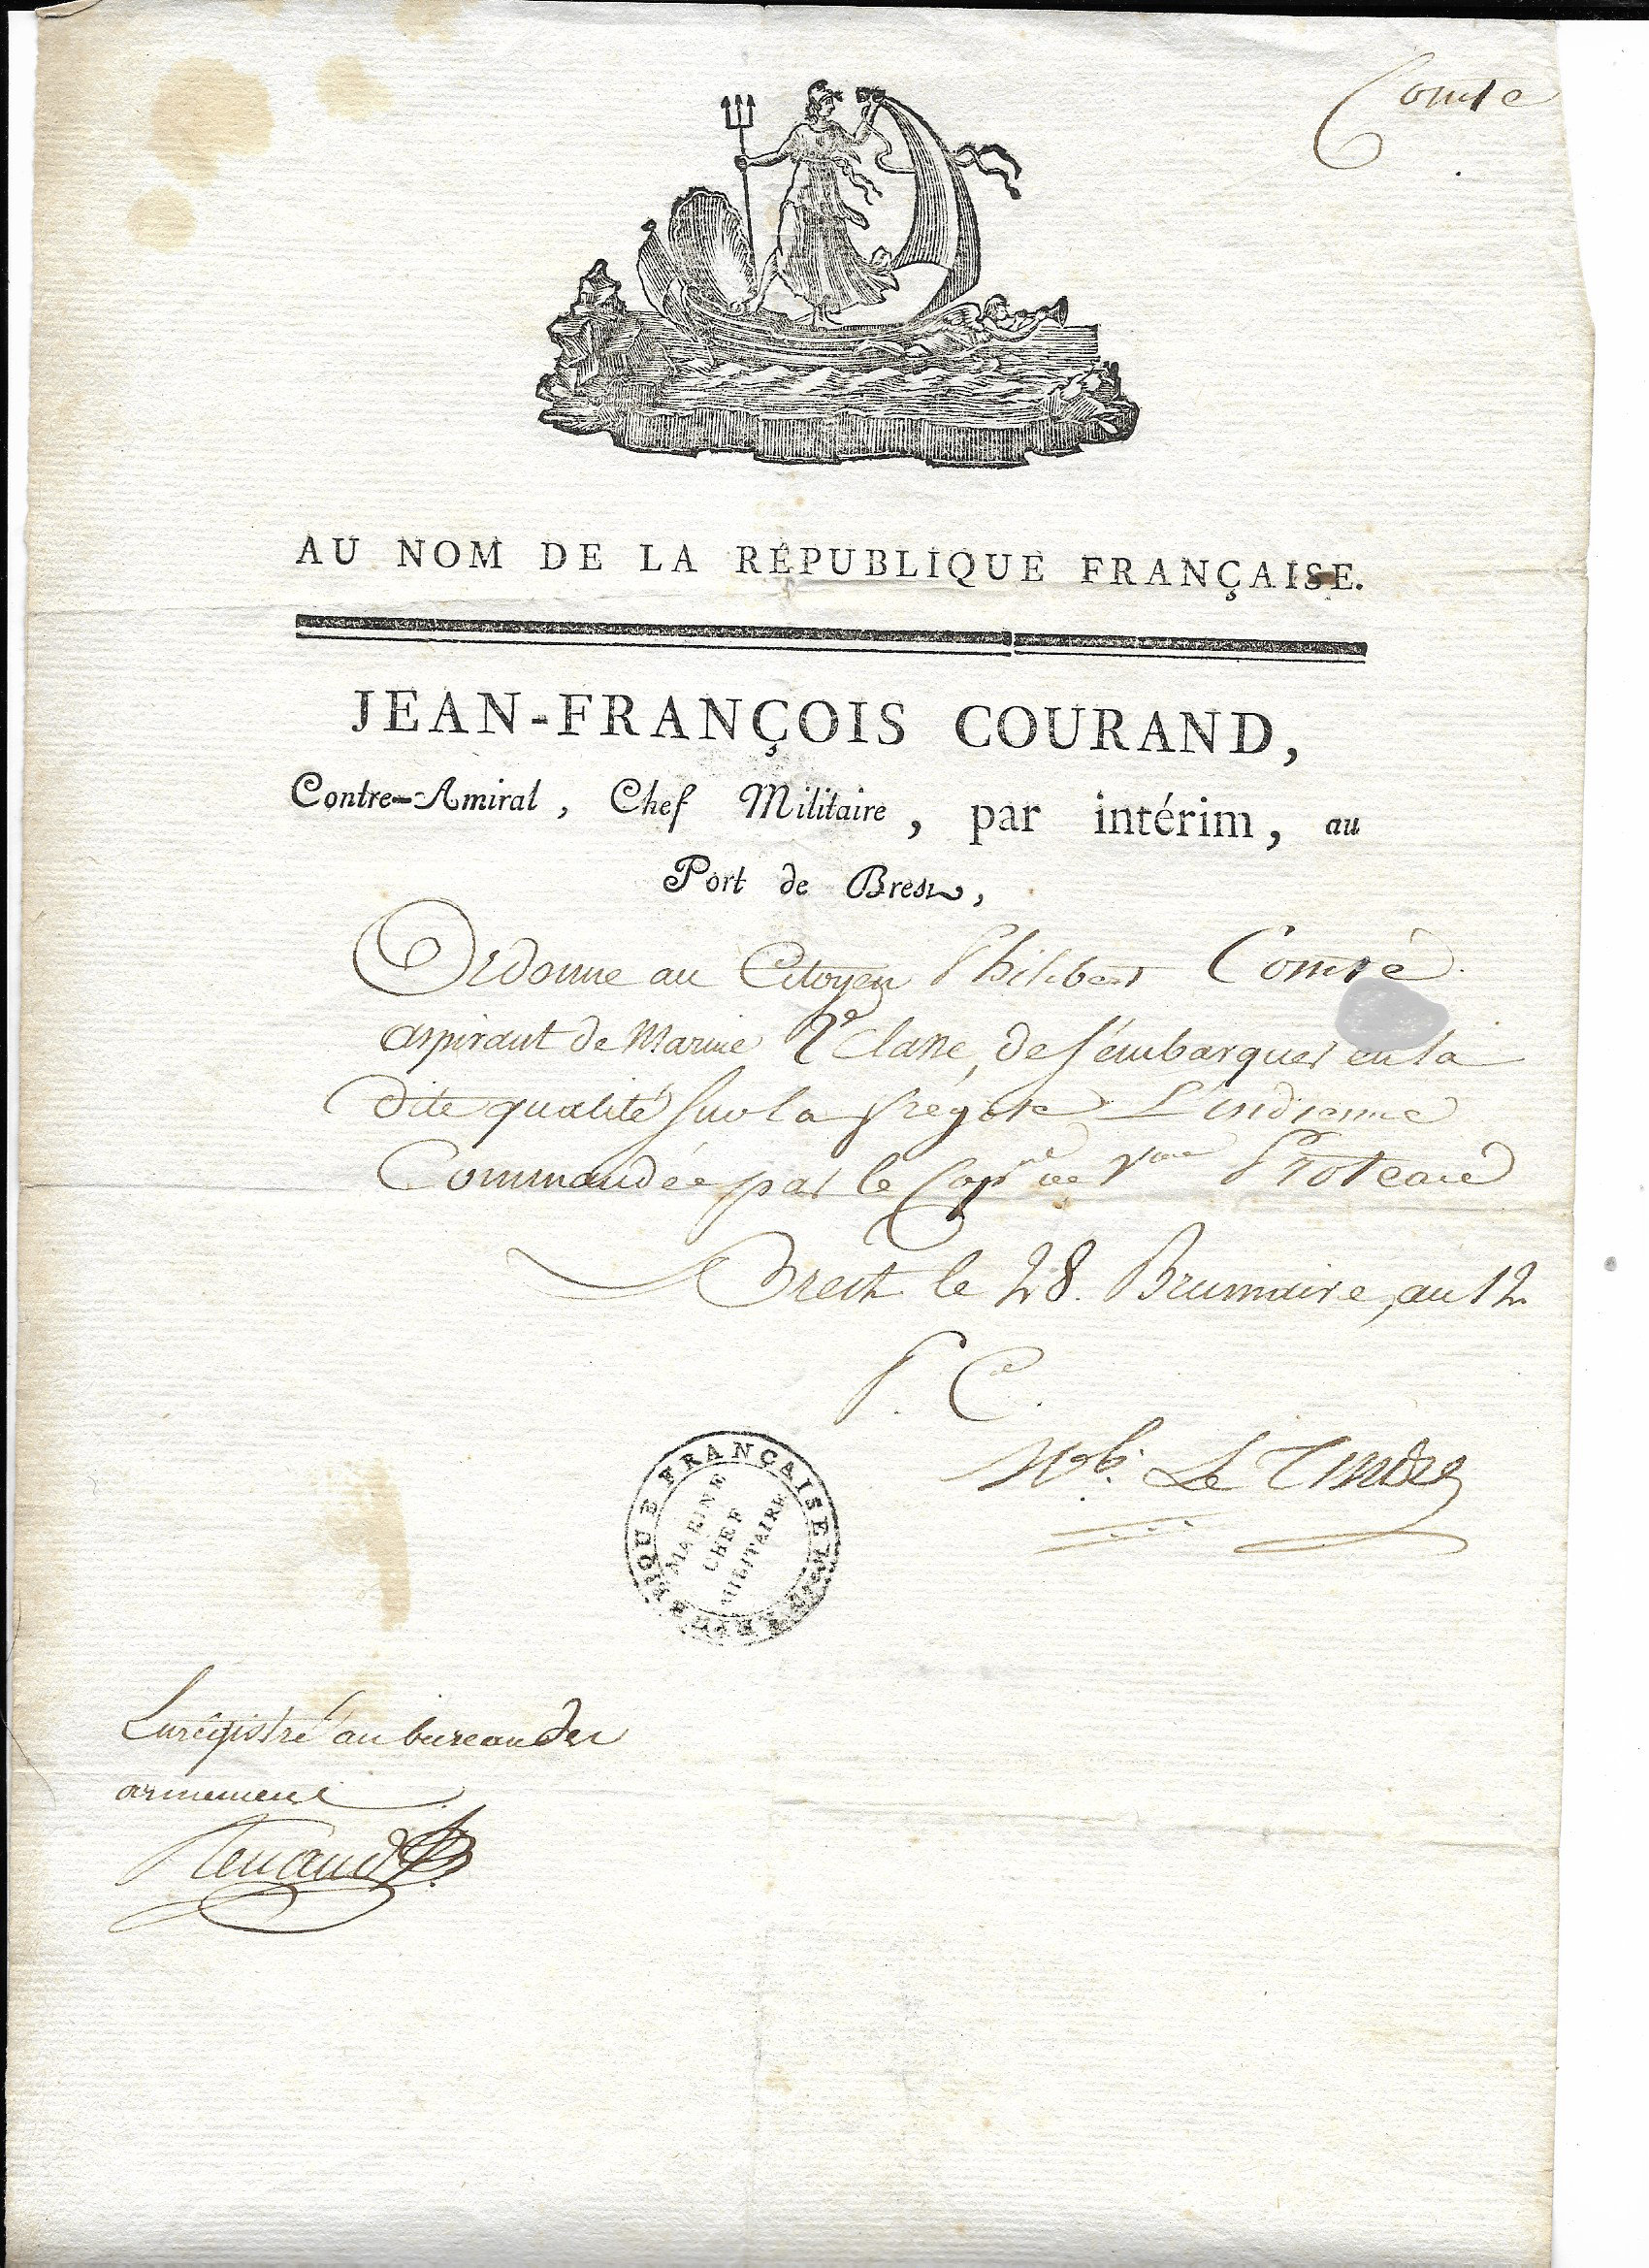 Comte
AU NOM DE LA RÉPUBLIQUE FRANÇAISE.
JEAN-FRANÇOIS COURAND,
Contre-Amiral, Chef Militaire, par intérim, au
Port de Brest,
Ordonne au Citoyen Philibert Comte
aspirant de Marine 2e Classe, de s'embarquer en la
dite qualité sur la frégate L'indienne
Commandée par le Capne de Vau Proteau
Brest le 28. Brumaire, an 12
P. Ce.
REPUBLIQUE FRANÇAISE
MARINE
CHEF
MILITAIRE
Enregistré au bureau des
armement
Renaud